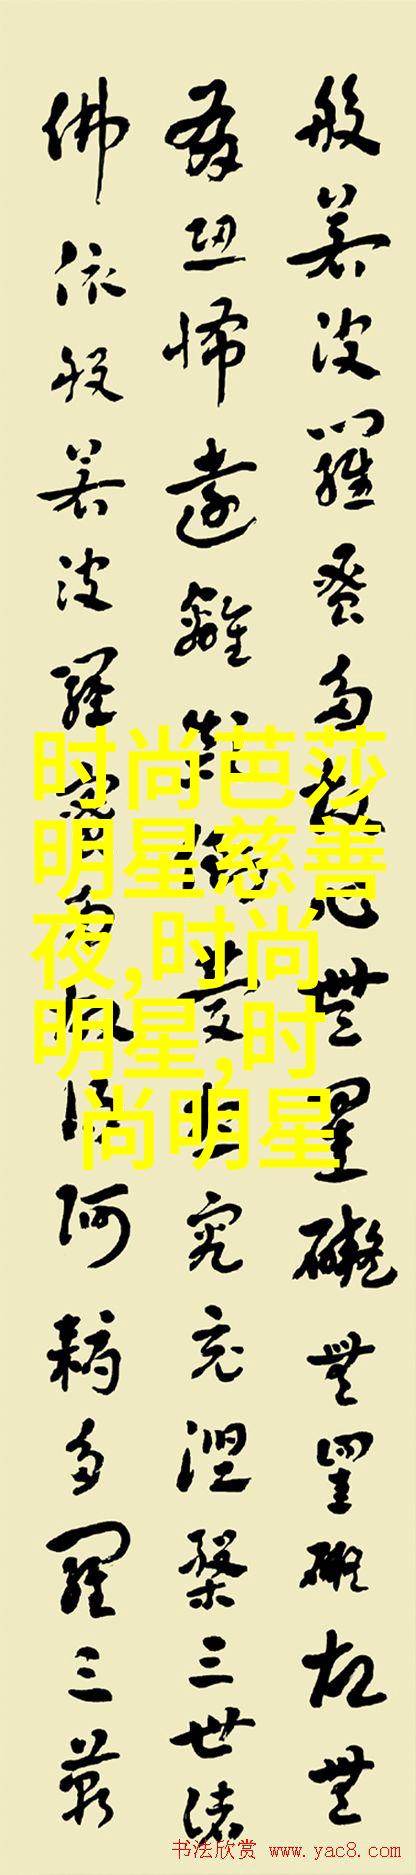 般若波羅蜜多故心無罣礙無罣礙故無
有恐怖遠離顛倒夢想究竟涅槃三世諸
佛依般若波羅蜜多故得阿耨多羅三藐
时尚芭莎
明星慈善
夜,时尚
明星,时
尚明星
书法欣赏 www.yac8.com